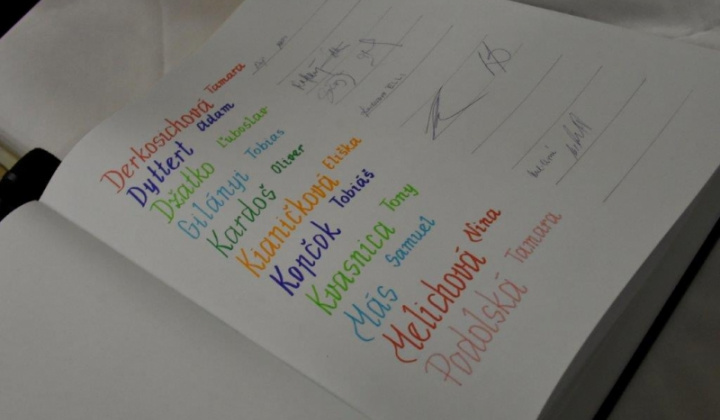 Derkosichová Tamara
Dyttert Adam
Džatko Ľuboslav
Gilányi Tobias
Kardoš Oliver
Kianičková Eliška
Kopčok Tobiáš
Kvasnica Tony
Más Samuel
Melichová Nina
Podolská Tamara